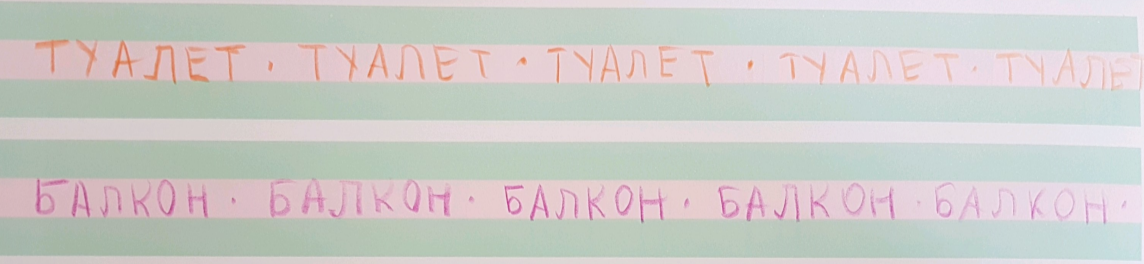 ТУАЛЕТ · ТУАЛЕТ · ТУАЛЕТ · ТУАЛЕТ · ТУАЛЕТ
БАЛКОН · БАЛКОН · БАЛКОН · БАЛКОН · БАЛКОН ·